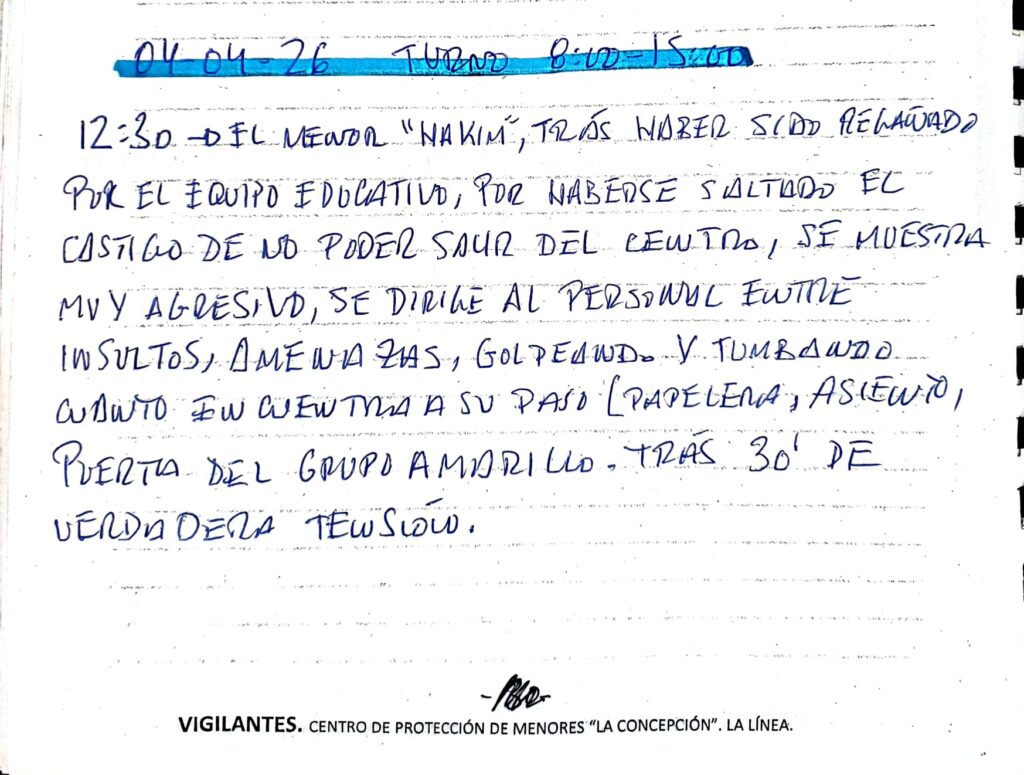 04-04-26 TURNO 8:00-15:00
12:30 → EL MENOR "HAKIM", TRÁS HABER SIDO REGAÑADO
POR EL EQUIPO EDUCATIVO, POR HABERSE SALTADO EL
CASTIGO DE NO PODER SALIR DEL CENTRO, SE MUESTRA
MUY AGRESIVO, SE DIRIGE AL PERSONAL ENTRE
INSULTOS, AMENAZAS, GOLPEANDO Y TUMBANDO
CUANTO ENCUENTRA A SU PASO (PAPELERA, ASIENTO,
PUERTA DEL GRUPO AMARILLO. TRÁS 30' DE
VERDADERA TENSIÓN.
VIGILANTES. CENTRO DE PROTECCIÓN DE MENORES "LA CONCEPCIÓN". LA LÍNEA.